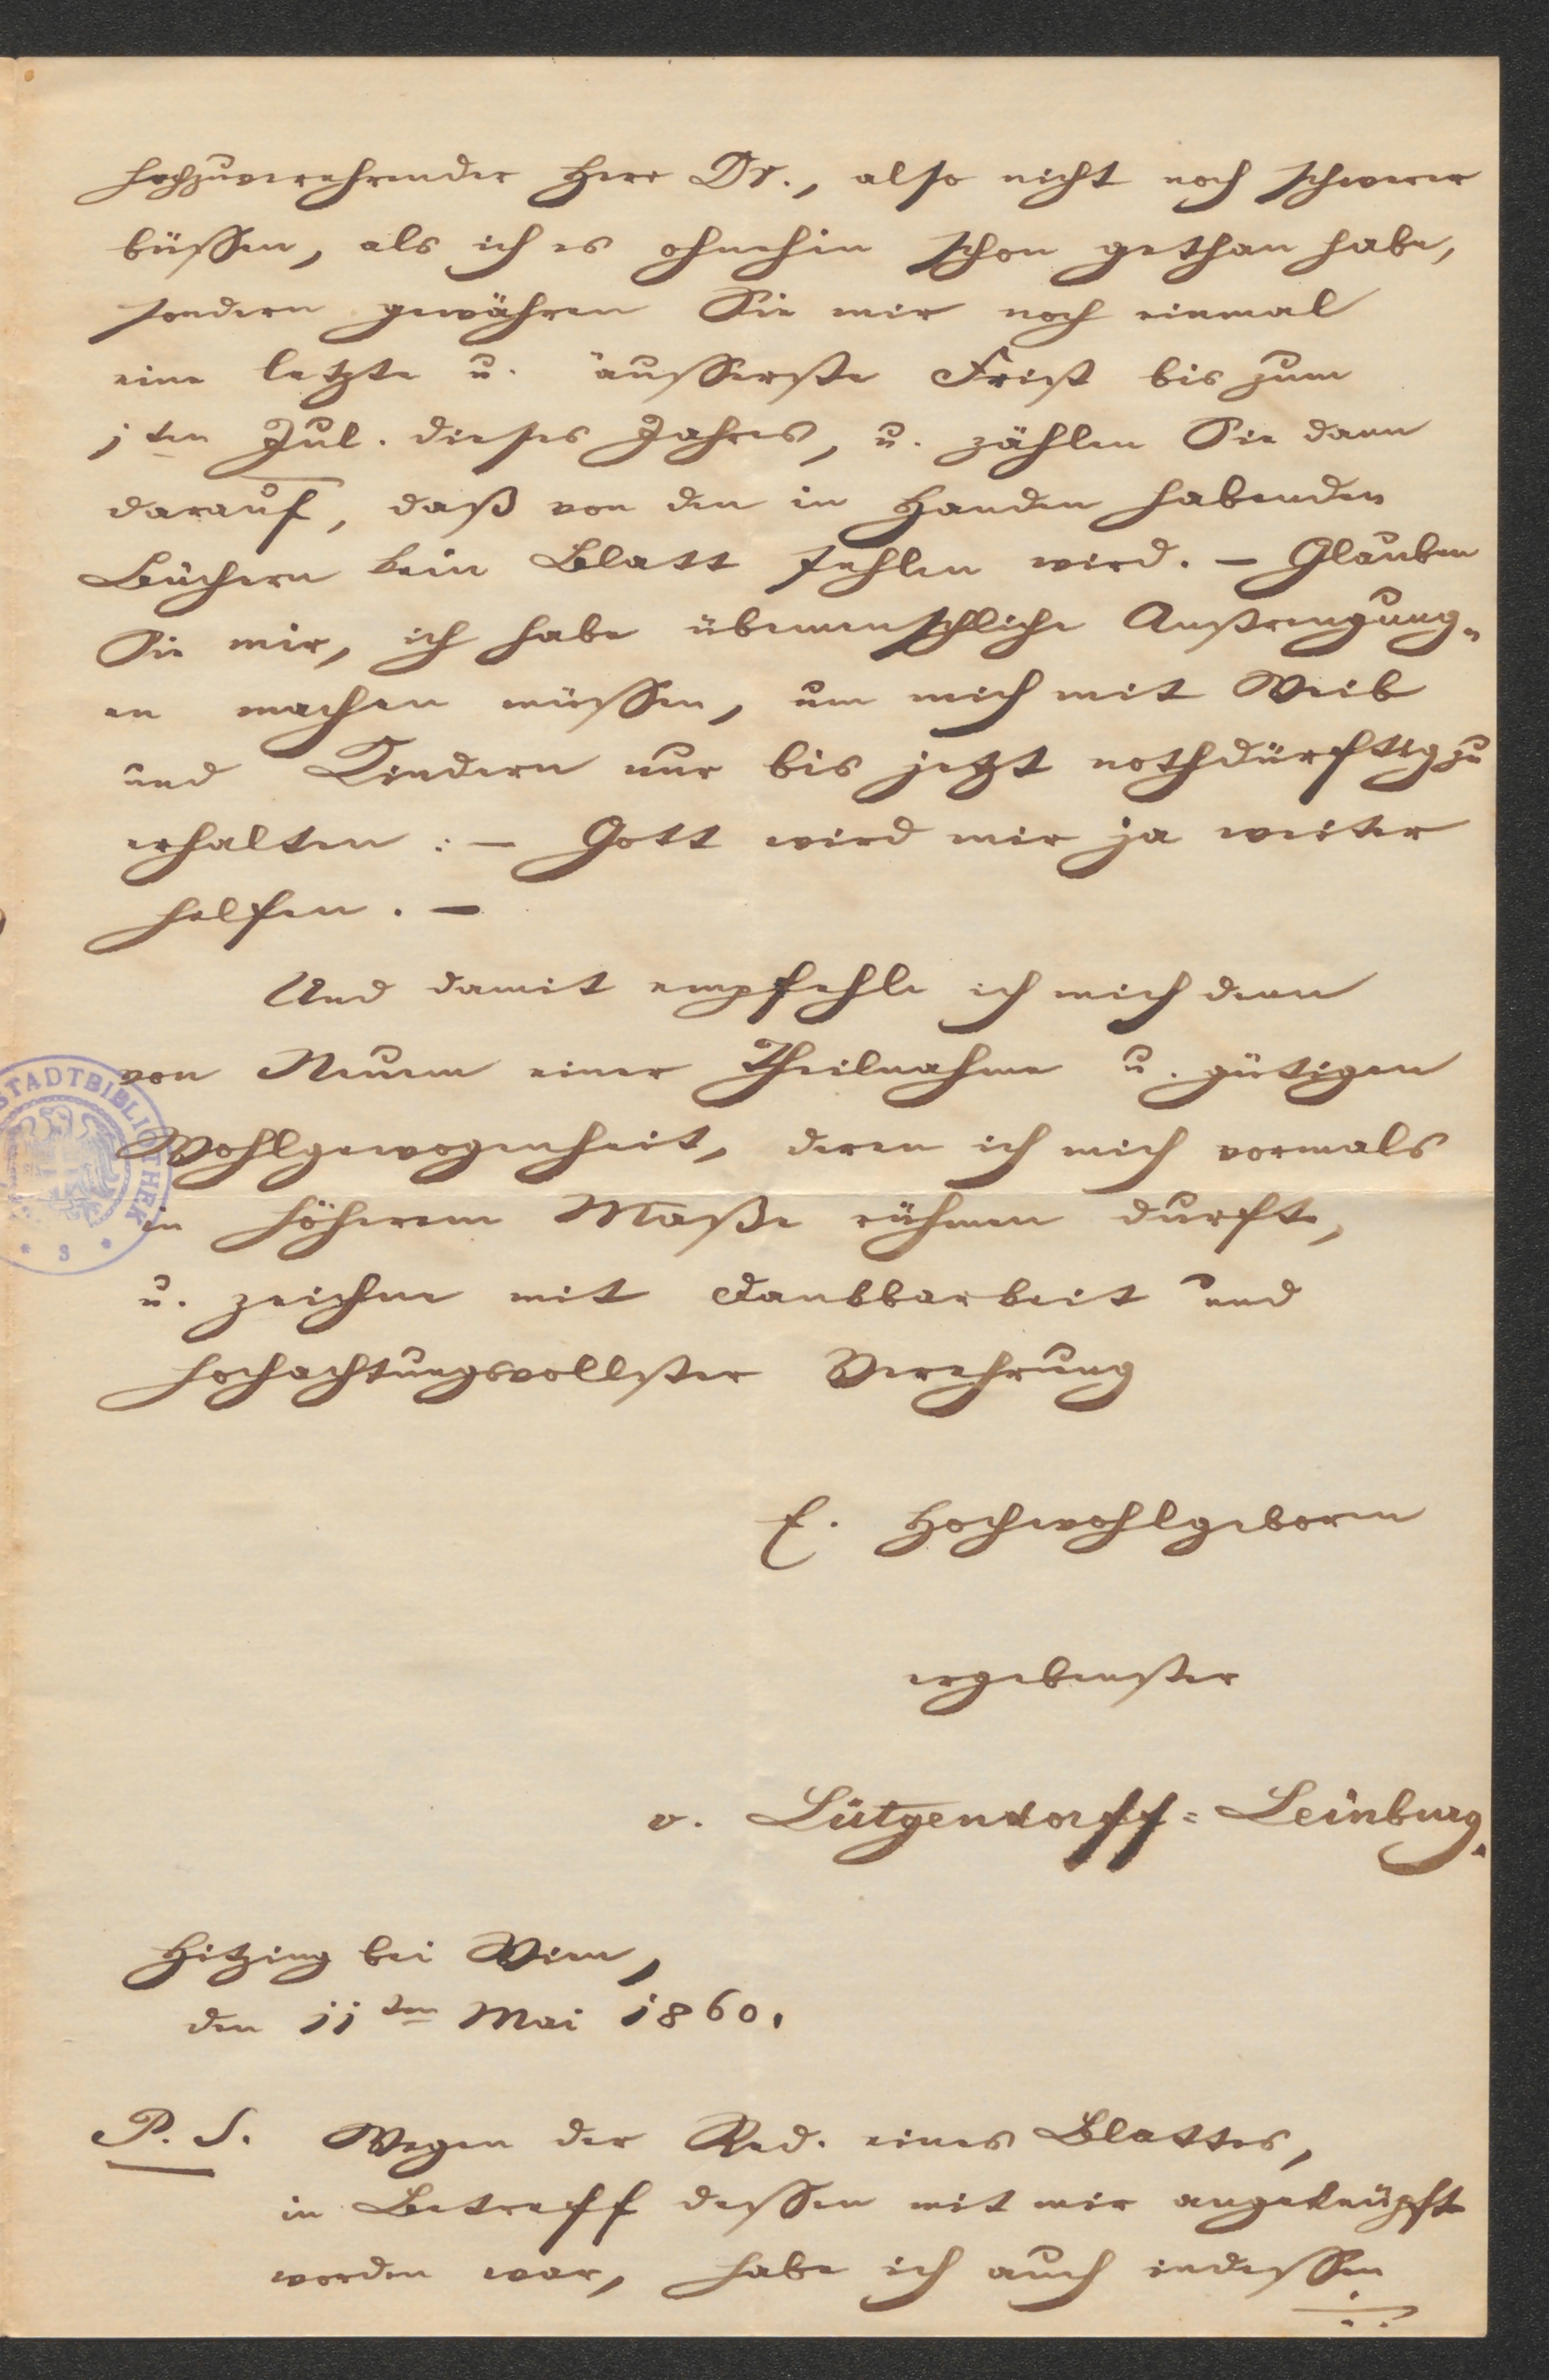 hochzuverehrender Herr Dr., also nicht noch schwerer
büssen, als ich es ohnehin schon gethan habe,
sondern gewähren Sie mir noch einmal
eine letzte u. äusserste Frist bis zum
1ten Jul. dieses Jahres, u. zählen Sie dann
darauf, daß von den in Handen habenden
Büchern kein Blatt fehlen wird. – Glauben
Sie mir, ich habe übermenschliche Anstrengung„
en machen müssen, um mich mit Weib
und Kindern nur bis jetzt nothdürftig zu
erhalten : – Gott wird mir ja weiter
helfen. –
Und damit empfehle ich mich denn
von Neuem einer Theilnahme u. gütigen
Wohlgewogenheit, deren ich mich vormals
in höherem Maße rühmen durfte,
u. zeichne mit Dankbarkeit und
hochachtungsvollster Verehrung
E. Hochwohlgeboren
ergebenster
v. Lütgendorff=Leinburg.
Hitzing bei Wien,
den 11ten Mai 1860.
P. S. Wegen der Red. eines Blattes,
in Betreff dessen mit mir angeknüpft
worden war, habe ich auch indessen
./.
STADTBIBLIOTHEK
* 3 *